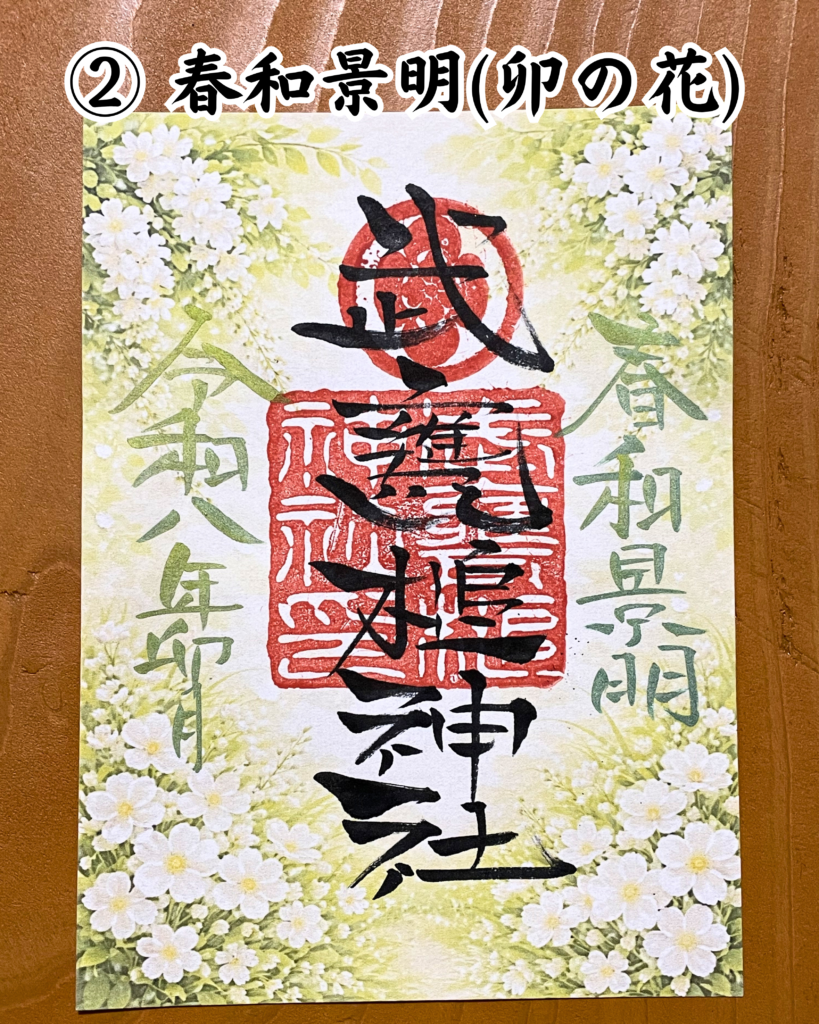 ② 春和景明(卯の花)
春和景明
武甕槌神社
令和八年卯月